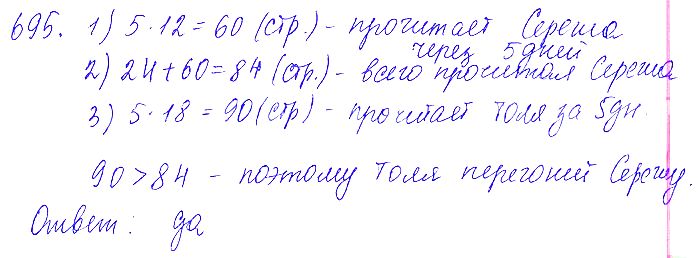 695. 1) 5 · 12 = 60 (стр.) - прочитает Сережа
через 5 дней
2) 24 + 60 = 84 (стр.) - всего прочитал Сережа
3) 5 · 18 = 90 (стр) - прочитает Толя за 5 дн.
90 > 84 - поэтому Толя перегонит Сережу.
Ответ: да